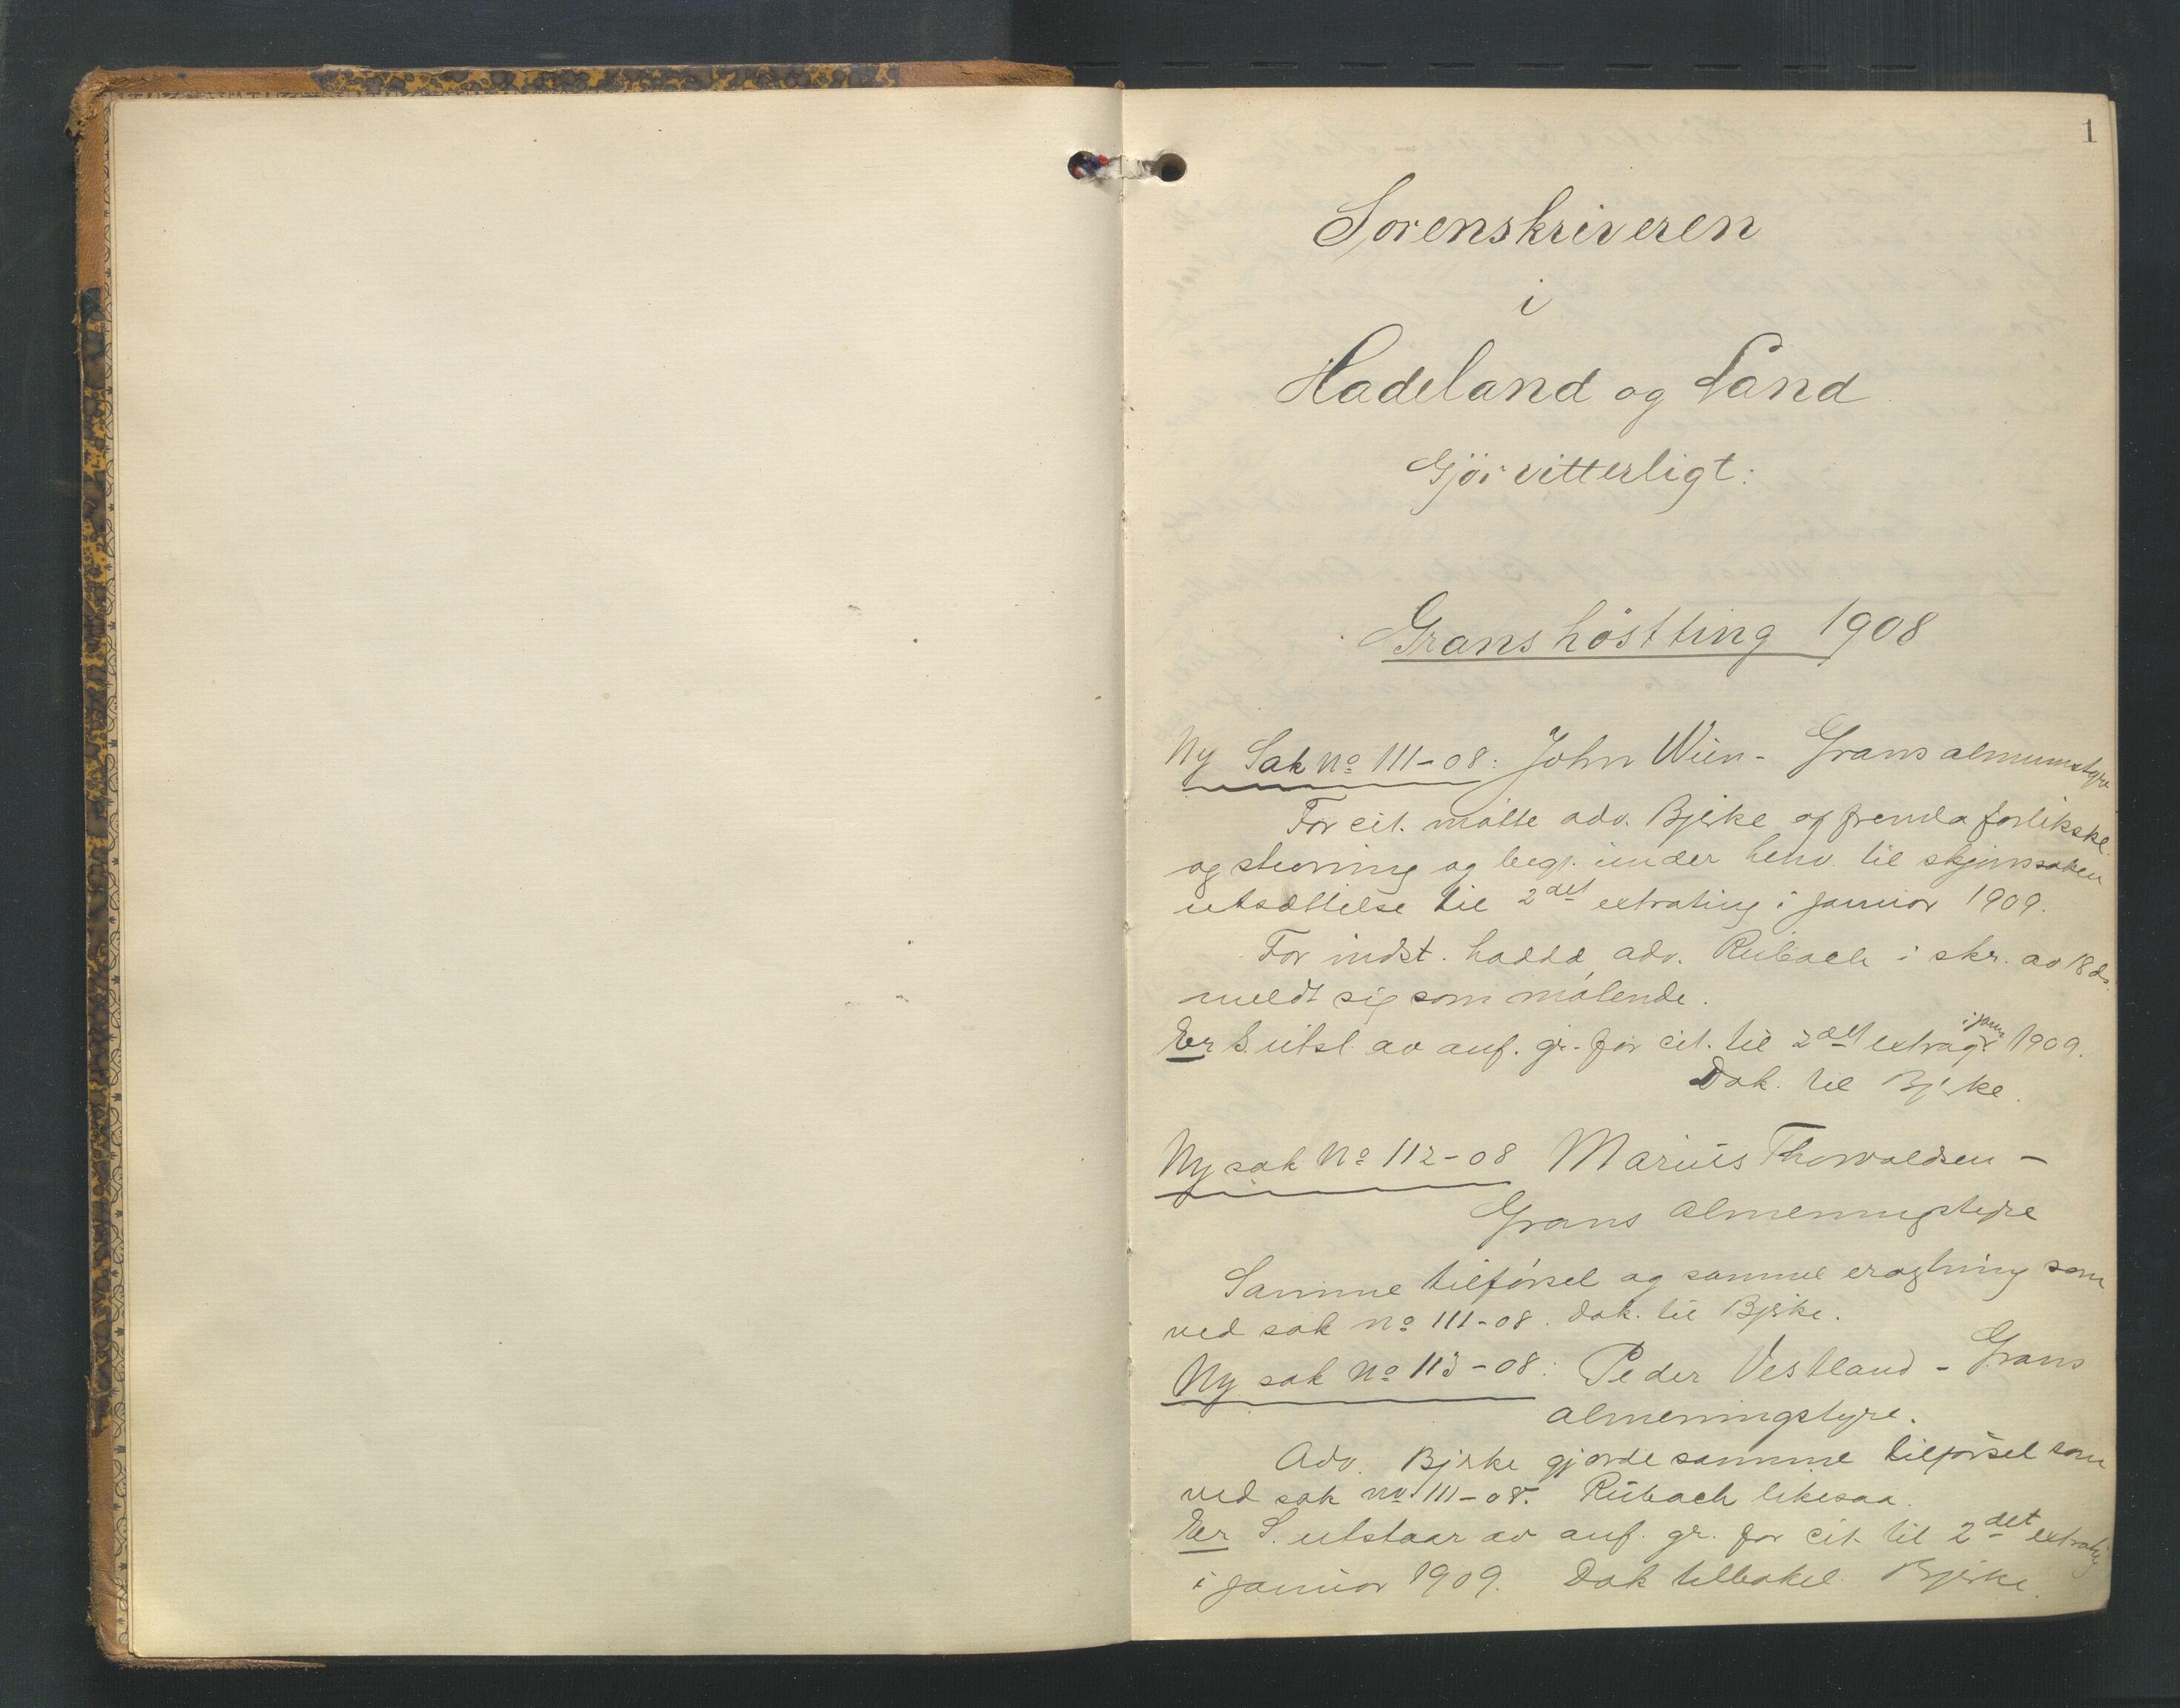 1
Sorenskriveren
i
Hadeland og Land
Gjör vitterligt:
Grans höstting 1908
Ny Sak No 111-08: John Wien - Grans almumstyre
For cit. møtte adv. Bjerke og fremla forlikskl.
og stevning og beg. under henv. til skjønssaken
utsættelse til 2det extrating i januar 1909.
For indst. hadde adv. Rubach i skr. av 18 ds.
meldt sig som møtende.
Er S. utst. av anf. gr. for cit. til 2det extrag. i jan. 1909.
Dok. til Bjerke.
Ny sak No 112-08 Marius Thorvaldsen -
Grans Almenningstyre
Samme tilførsel og samme eragtning som
ved sak no 111-08. Dok. til Bjerke.
Ny sak No 113-08: Peder Vestland - Grans
almenningstyre.
Adv. Bjerke gjorde samme tilførsel som
ved sak no 111-08. Rubach likesaa.
Er S. utstaar av anf. gr. for cit. til 2det extrating
i januar 1909. Dok tilbakel. Bjerke.